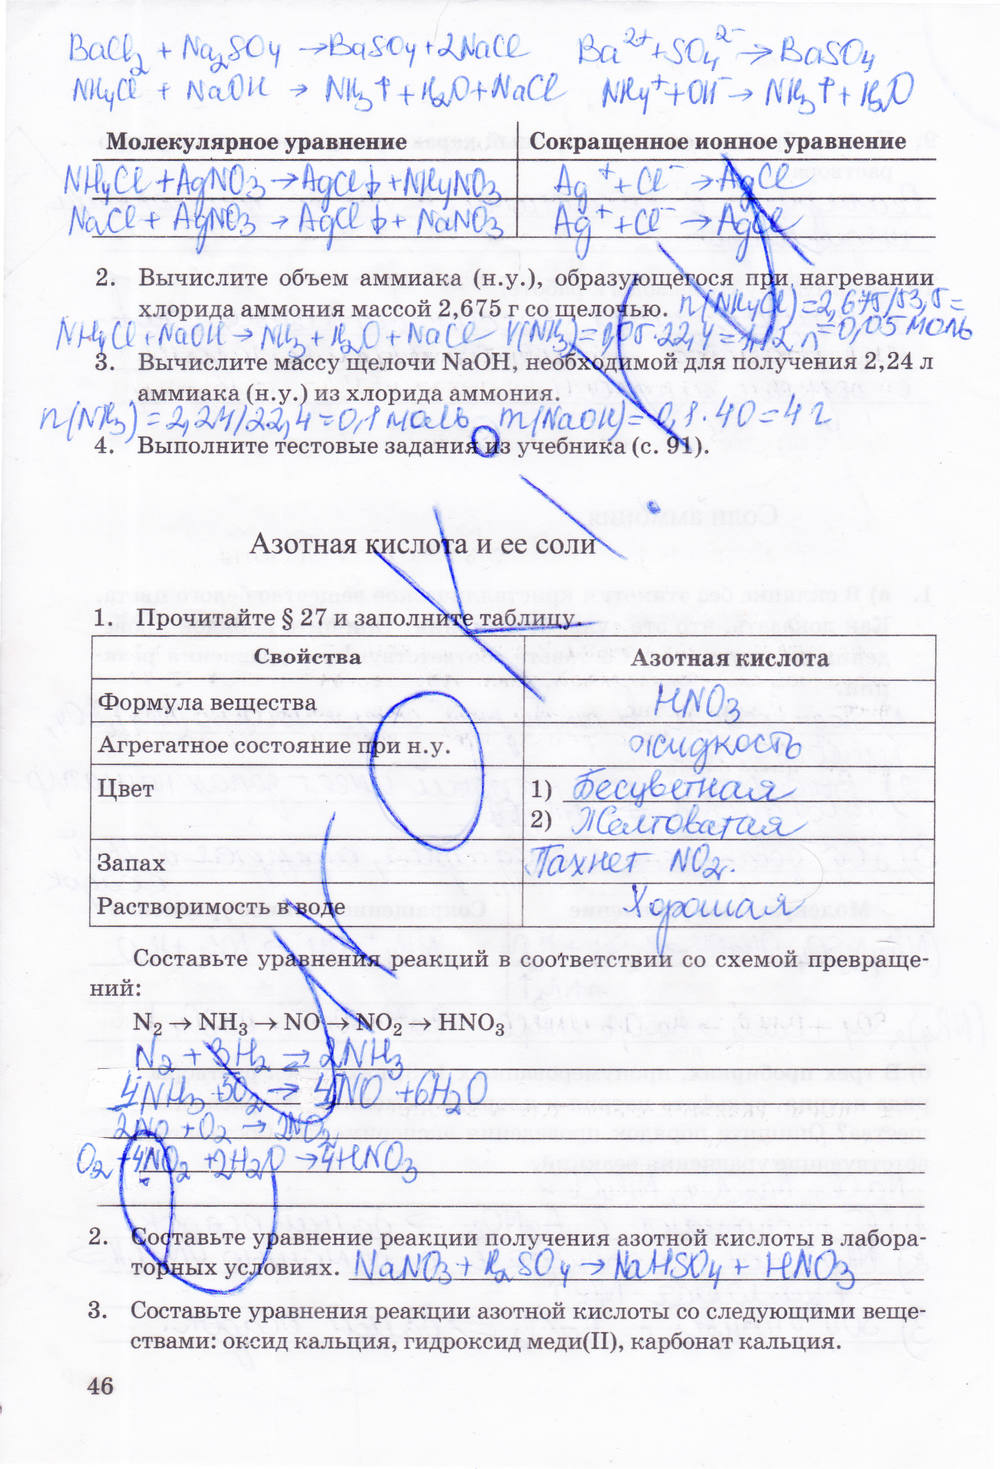 BaCl₂ + Na₂SO₄ → BaSO₄ + 2NaCl    Ba²⁺ + SO₄²⁻ → BaSO₄
NH₄Cl + NaOH → NH₃↑ + H₂O + NaCl    NH₄⁺ + OH⁻ → NH₃↑ + H₂O
Молекулярное уравнение    Сокращенное ионное уравнение
NH₄Cl + AgNO₃ → AgCl↓ + NH₄NO₃    Ag⁺ + Cl⁻ → AgCl
NaCl + AgNO₃ → AgCl↓ + NaNO₃    Ag⁺ + Cl⁻ → AgCl
2. Вычислите объем аммиака (н.у.), образующегося при нагревании
хлорида аммония массой 2,675 г со щелочью. n(NH₄Cl) = 2,675/53,5 =
= 0,05 моль
NH₄Cl + NaOH → NH₃ + H₂O + NaCl    V(NH₃) = 0,05·22,4 = 1,12 л
3. Вычислите массу щелочи NaOH, необходимой для получения 2,24 л
аммиака (н.у.) из хлорида аммония.
n(NH₃) = 2,24/22,4 = 0,1 моль    m(NaOH) = 0,1·40 = 4 г
4. Выполните тестовые задания из учебника (с. 91).
Азотная кислота и ее соли
1. Прочитайте § 27 и заполните таблицу.
Свойства    Азотная кислота
Формула вещества    HNO₃
Агрегатное состояние при н.у.    жидкость
Цвет    1) Бесцветная
2) Желтоватая
Запах    Пахнет NO₂.
Растворимость в воде    Хорошая
Составьте уравнения реакций в соответствии со схемой превраще-
ний:
N₂ → NH₃ → NO → NO₂ → HNO₃
N₂ + 3H₂ ⇄ 2NH₃
4NH₃ + 5O₂ → 4NO + 6H₂O
2NO + O₂ → 2NO₂
O₂ + 4NO₂ + 2H₂O → 4HNO₃
2. Составьте уравнение реакции получения азотной кислоты в лабора-
торных условиях. NaNO₃ + H₂SO₄ → NaHSO₄ + HNO₃
3. Составьте уравнения реакции азотной кислоты со следующими веще-
ствами: оксид кальция, гидроксид меди(II), карбонат кальция.
46